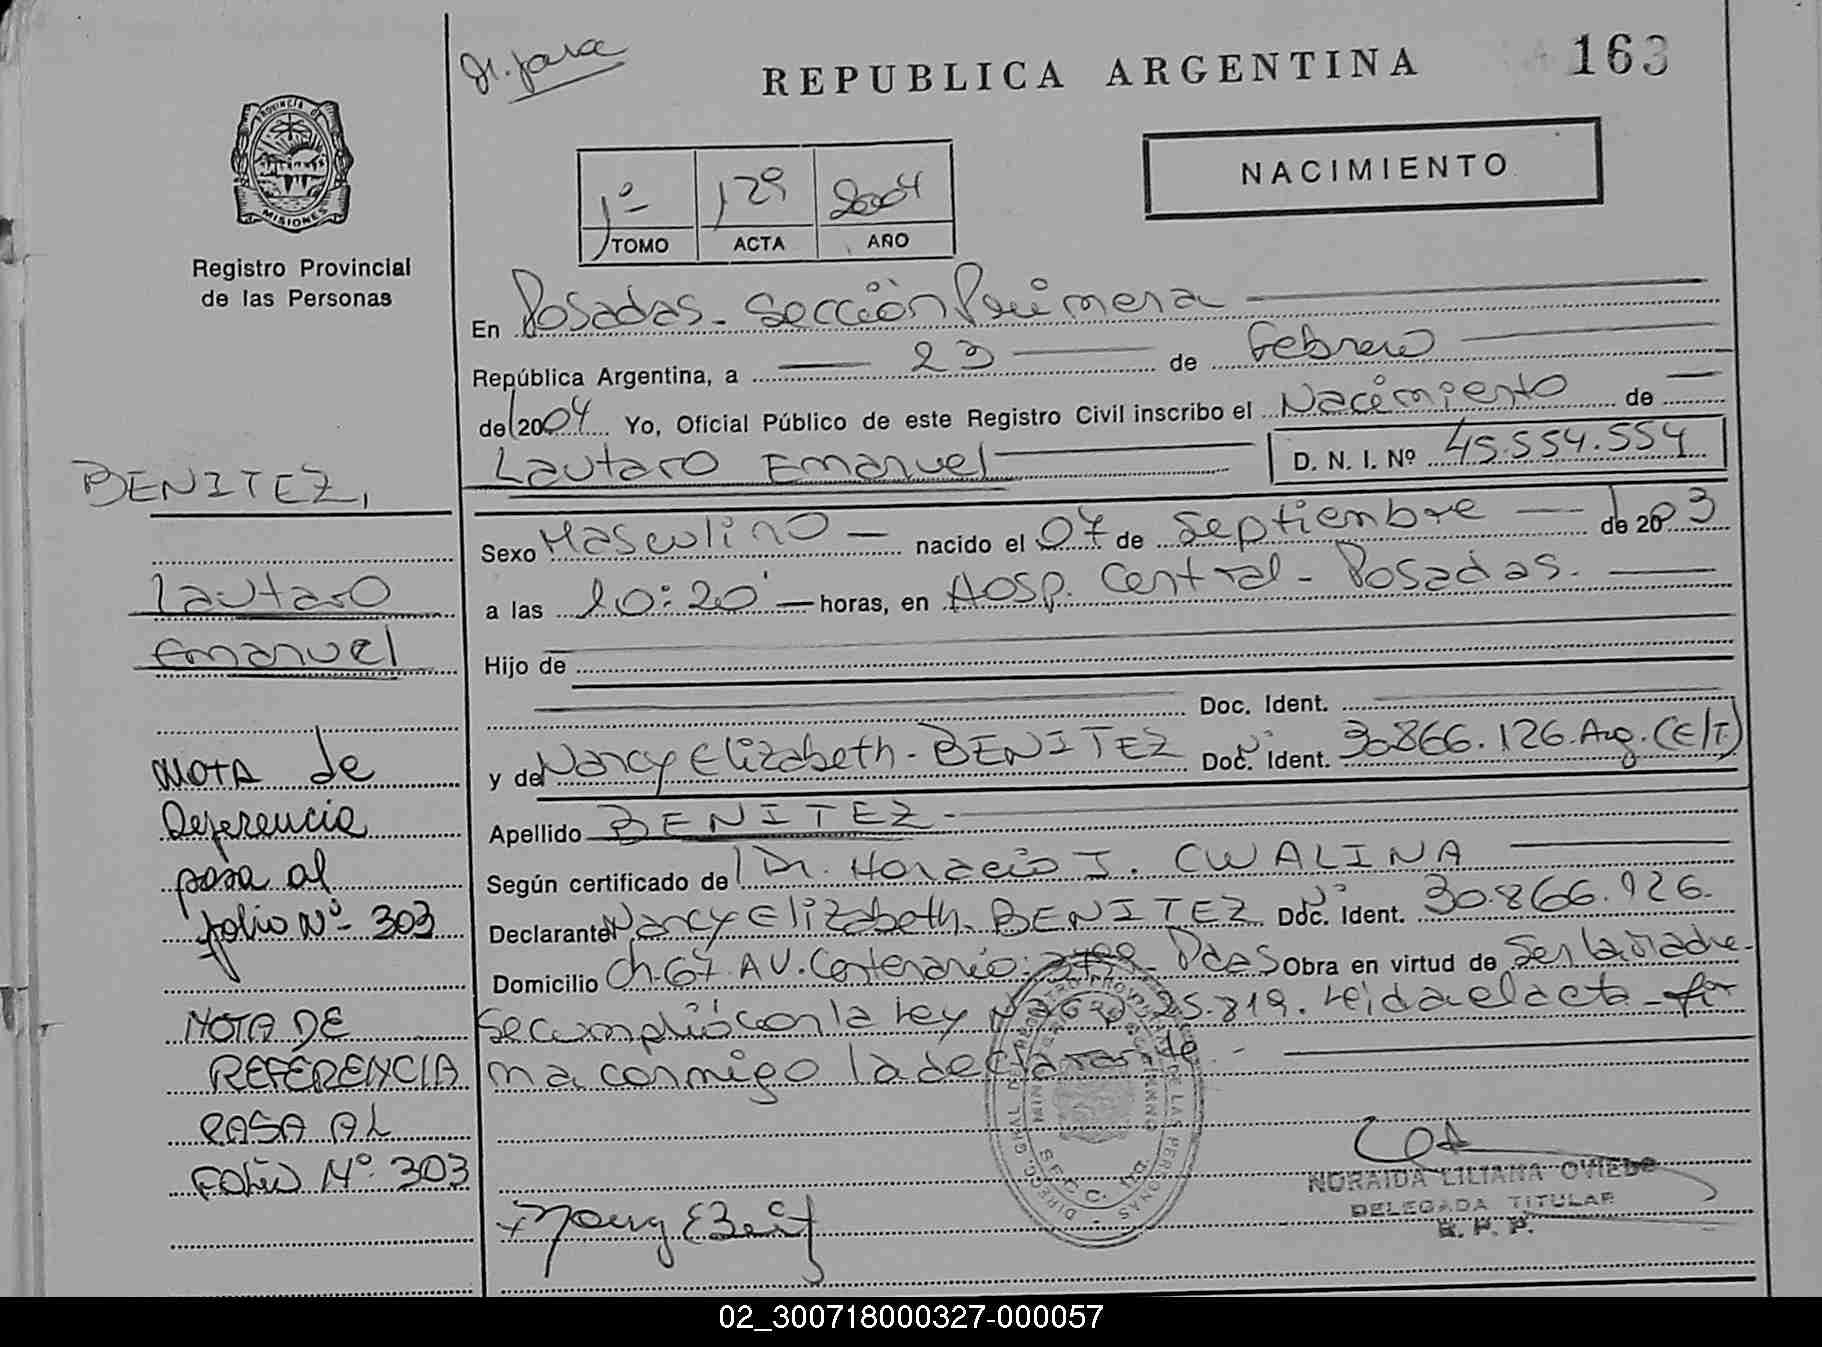 REPUBLICA ARGENTINA
163
NACIMIENTO
PROVINCIA DE
MISIONES
Registro Provincial
de las Personas
1º 129 2004
TOMO ACTA AÑO
En Posadas - Sección Primera
República Argentina, a 23 de Febrero
de 2004 Yo, Oficial Público de este Registro Civil inscribo el Nacimiento de
Lautaro Emanuel D. N. I. Nº 45.554.554
BENITEZ,
Lautaro
Emanuel
Sexo Masculino nacido el 07 de Septiembre de 2003
a las 10:20' horas, en Hosp. Central - Posadas.
Hijo de
Doc. Ident.
y de Nancy Elizabeth - BENITEZ Doc. Nº Ident. 30.866.126. Arg. (E/T)
Apellido BENITEZ
Según certificado de Dr. Horacio J. CWALINA
Declarante Nancy Elizabeth - BENITEZ Doc. Nº Ident. 30.866.126.
Domicilio Ch. 67 AV. Centenario Pdas Obra en virtud de Ser la Madre -
Se cumplió con la Ley 25.819. Leida el acta - fir
ma conmigo la declarante. -
NOTA de
Referencia
pasa al
folio Nº 303
NOTA DE
REFERENCIA
PASA AL
FOLIO Nº 303
NORAIDA LILIANA OVIEDO
DELEGADA TITULAR
R. P. P.
02_300718000327-000057